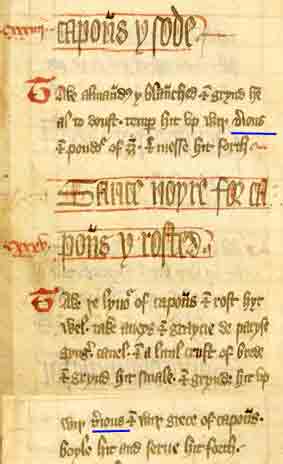 cxxxiiij capoūs y sode
Take almaūdes y blaūched & grynd hē
al to doust. temp hit up wiþ v̓ious
& poudo᷑ of gȳ. & messe hit forth
Sauce noyre for ca
cxxxv poūs y rosted.
Take þe lyuo᷑ of capoūs & rost hyt
wel. take anyes & greyne de paryse
gyng᷑. canel. & a litul crust of brede
& grynd hit smale. & grynde hit up
wiþ v̓ious & wiþ grece of capoūs.
boyle hit and serue hit forth.